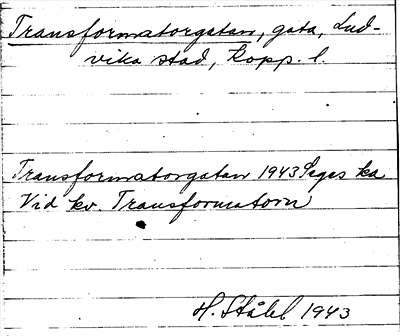 Transformatorgatan, gata, Lud-
vika stad, Kopp. l.
Transformatorgatan 1943 Sages ka
Vid kv. Transformatorn
H. Ståhl 1943